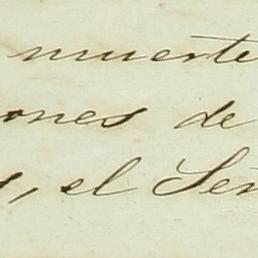 muerte
ones de
s, el Señ